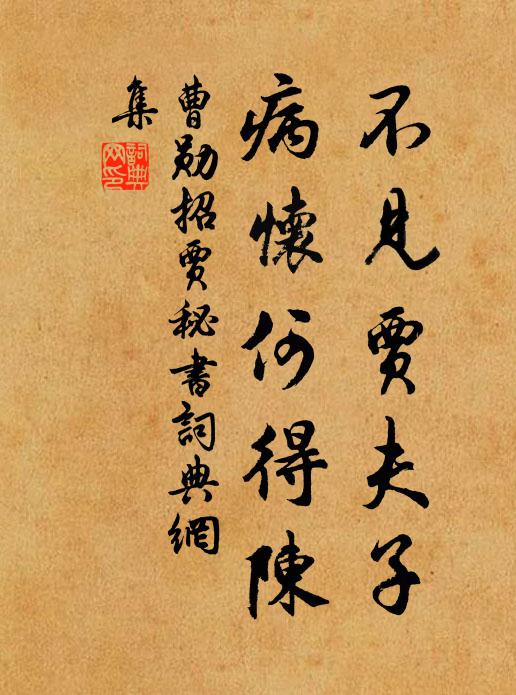 不見賈夫子
病懷何得陳
曹勛招賈秘書詞典網
集
詞典
网印